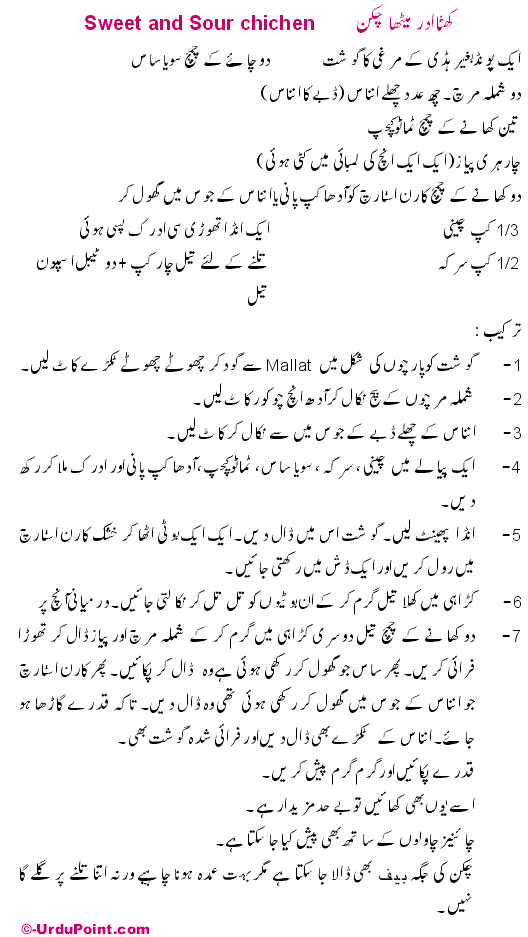 Sweet and Sour chichen کھٹا اور میٹھا چکن
ایک پونڈ بغیر ہڈی کے مرغی کا گوشت دو چائے کے چمچ سویا ساس
دو شملہ مرچ۔ چھ عدد چھلے انناس (ڈبے کا انناس)
تین کھانے کے چمچ ٹماٹو کیچپ
چار ہری پیاز (ایک ایک انچ کی لمبائی میں کٹی ہوئی)
دو کھانے کے چمچ کارن اسٹارچ کو آدھا کپ پانی یا انناس کے جوس میں گھول کر
1/3 کپ چینی ایک انڈا تھوڑی سی ادرک پسی ہوئی
1/2 کپ سرکہ تلنے کے لئے تیل چار کپ + دو ٹیبل اسپون
تیل
ترکیب :
1- گوشت کو پارچوں کی شکل میں Mallat سے گود کر چھوٹے چھوٹے ٹکڑے کاٹ لیں۔
2- شملہ مرچوں کے بیج نکال کر آدھ انچ چوکور کاٹ لیں۔
3- انناس کے چھلے ڈبے کے جوس میں سے نکال کر کاٹ لیں۔
4- ایک پیالے میں چینی، سرکہ، سویا ساس، ٹماٹو کیچپ، آدھا کپ پانی اور ادرک ملا کر رکھ
دیں۔
5- انڈا پھینٹ لیں۔ گوشت اس میں ڈال دیں۔ ایک ایک بوٹی اٹھا کر خشک کارن اسٹارچ
میں رول کریں اور ایک ڈش میں رکھتی جائیں۔
6- کڑاہی میں کھلا تیل گرم کر کے ان بوٹیوں کو تل تل کر نکالتی جائیں۔ درمیانی آنچ پر
7- دو کھانے کے چمچ تیل دوسری کڑاہی میں گرم کر کے شملہ مرچ اور پیاز ڈال کر تھوڑا
فرائی کریں۔ پھر ساس جو گھول کر رکھی ہوئی ہے وہ ڈال کر پکائیں۔ پھر کارن اسٹارچ
جو انناس کے جوس میں گھول کر رکھی ہوئی تھی وہ ڈال دیں۔ تاکہ قدرے گاڑھا ہو
جائے۔ انناس کے ٹکڑے بھی ڈال دیں اور فرائی شدہ گوشت بھی۔
قدرے پکائیں اور گرم گرم پیش کریں۔
اسے یوں بھی کھائیں تو بے حد مزیدار ہے۔
چائنیز چاولوں کے ساتھ بھی پیش کیا جا سکتا ہے۔
چکن کی جگہ بیف بھی ڈالا جا سکتا ہے مگر بہت عمدہ ہونا چاہیے ورنہ اتنا تلنے پر گلے گا
نہیں۔
©-UrduPoint.com